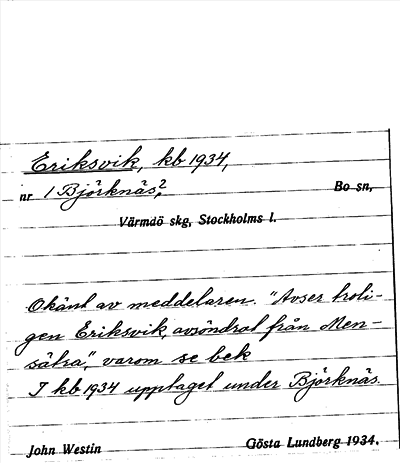 Eriksvik, kb 1934,
nr 1 Björknäs,² Bo sn,
Värmdö skg, Stockholms l.
Okänt av meddelaren. "Avser troli-
gen Eriksvik, avsöndrat från Men-
sätra", varom se bek
I kb 1934 upptaget under Björknäs.
John Westin Gösta Lundberg 1934.